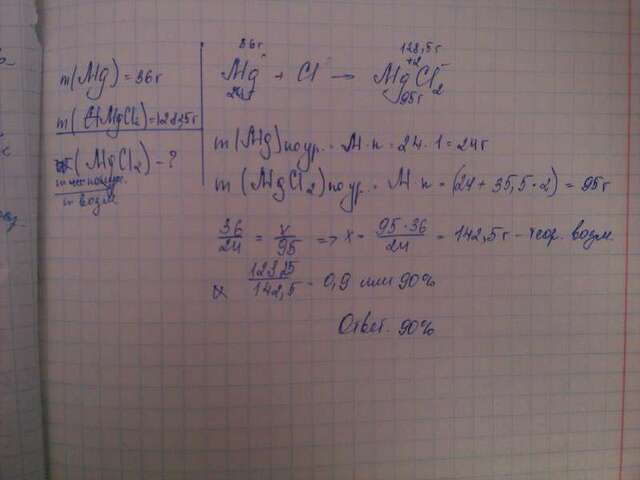 m(Mg) = 36г
m(MgCl₂) = 128,5г
(MgCl₂) - ?
m возм.
36г 128,5г
Mg + Cl → MgCl₂
24г 95г
m(Mg) по ур. = M · n = 24 · 1 = 24г
m(MgCl₂) по ур. = M · n = (24 + 35,5 · 2) = 95г
36/24 = x/95 => x = 95·36/24 = 142,5г - теор. возм.
/142,5 = 0,9 или 90%
Ответ. 90%